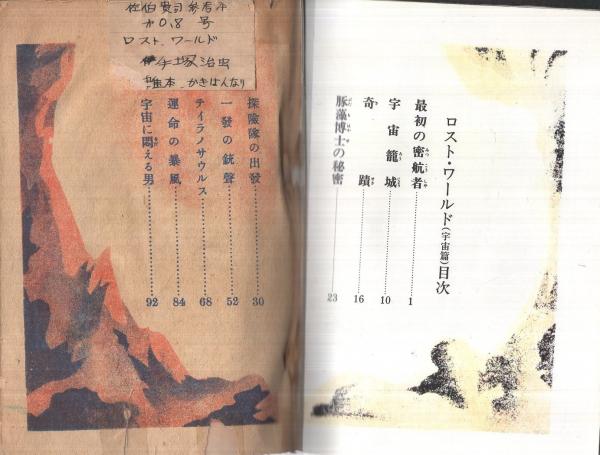 ロスト・ワールド(宇宙篇)目次
最初の密航者……………1
宇宙籠城……………10
奇蹟……………16
豚藻博士の秘密……………23
佐伯貴司参考本
ロスト、ワールド
手塚治虫
探險隊の出發……………30
一發の銃聲……………52
テイラノサウルス……………68
運命の暴風……………84
宇宙に悶える男……………92